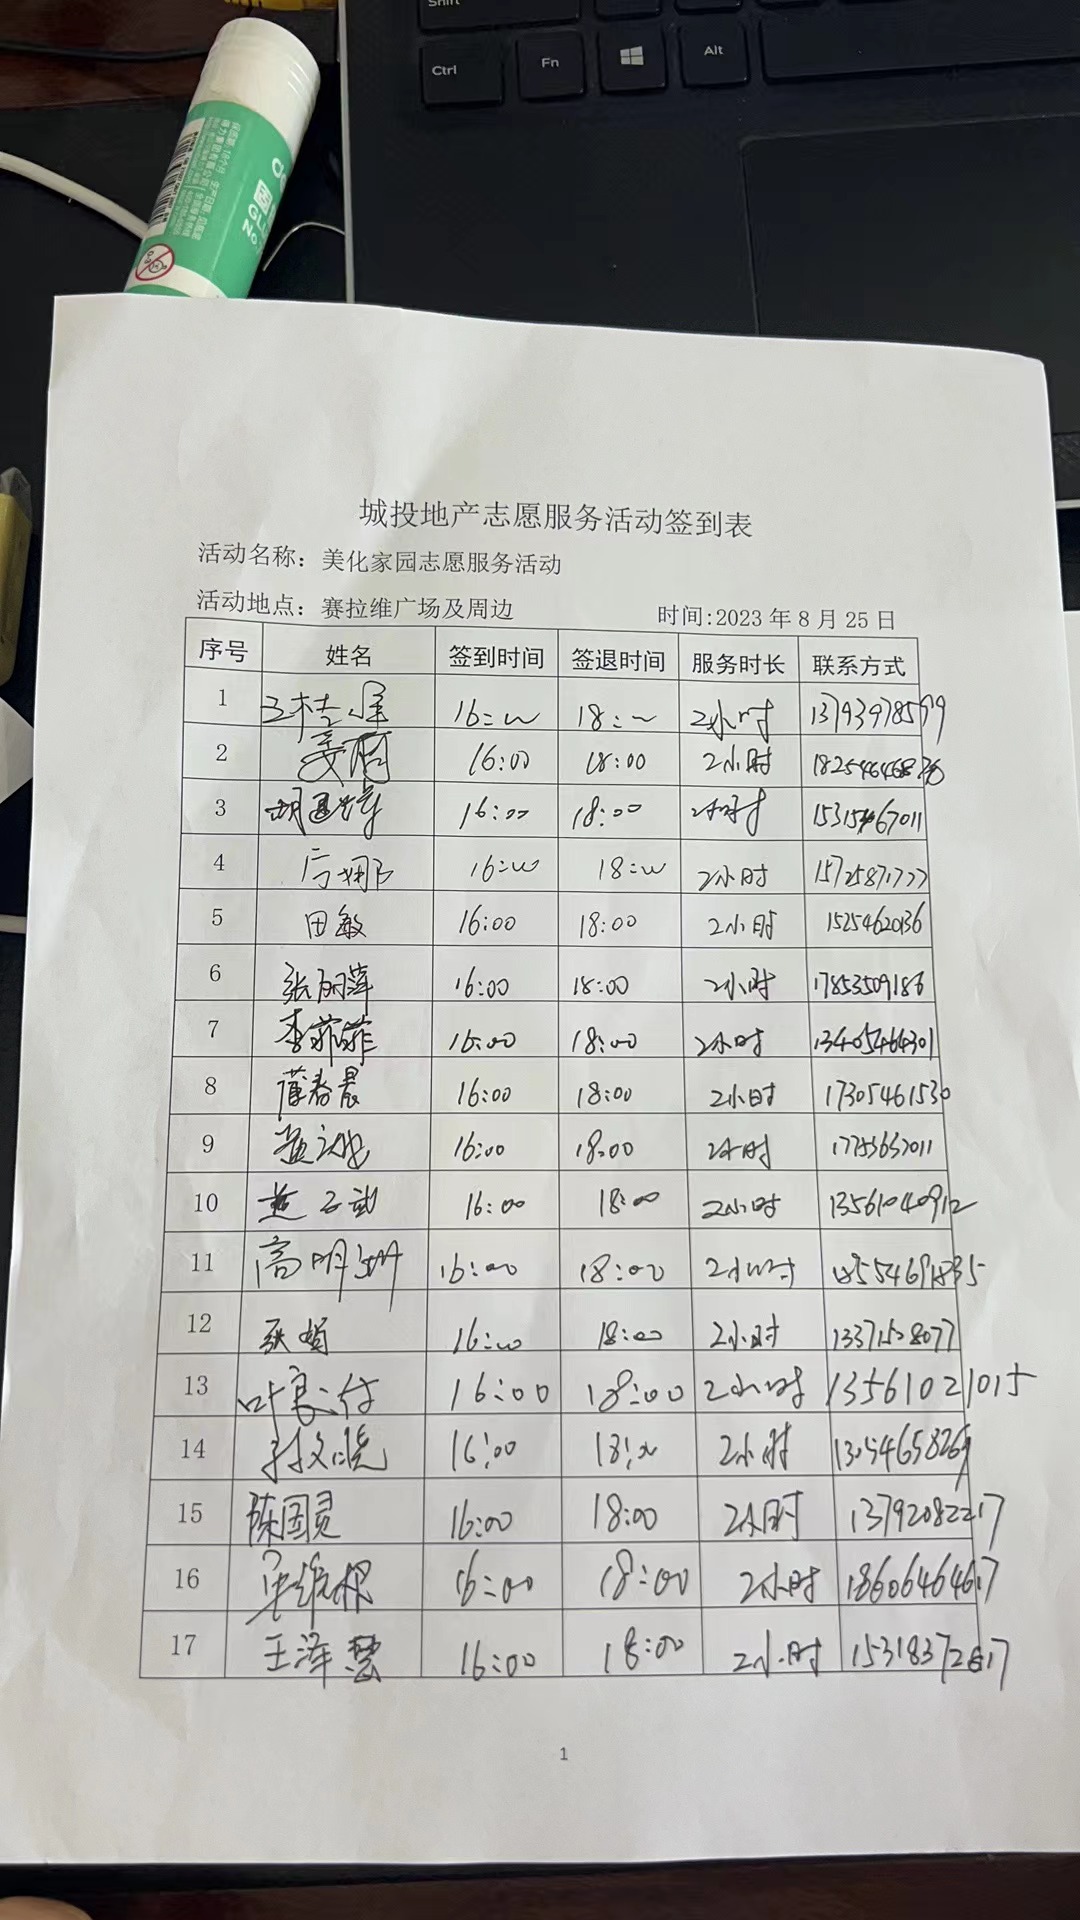 Shift
Ctrl Fn Alt
GLU
No.
城投地产志愿服务活动签到表
活动名称：美化家园志愿服务活动
活动地点：赛拉维广场及周边 时间:2023 年 8 月 25 日
序号 姓名 签到时间 签退时间 服务时长 联系方式
1 16:00 18:00 2小时 13793978599
2 姜丽 16:00 18:00 2小时
3 16:00 18:00 2小时 15315467011
4 16:00 18:00 2小时 15725871777
5 田敏 16:00 18:00 2小时 15254620136
6 张丽萍 16:00 18:00 2小时 17853509186
7 李菲菲 16:00 18:00 2小时 13405464301
8 薄春晨 16:00 18:00 2小时 17305461530
9 16:00 18:00 2小时
10 16:00 18:00 2小时 13561040912
11 高明洲 16:00 18:00 2小时
12 张娟 16:00 18:00 2小时 13371528077
13 16:00 18:00 2小时 13561021015
14 孙文晓 16:00 18:00 2小时 13054658269
15 陈国灵 16:00 18:00 2小时 13792082217
16 16:00 18:00 2小时 18606464617
17 王泽慧 16:00 18:00 2小时 15318372617
1